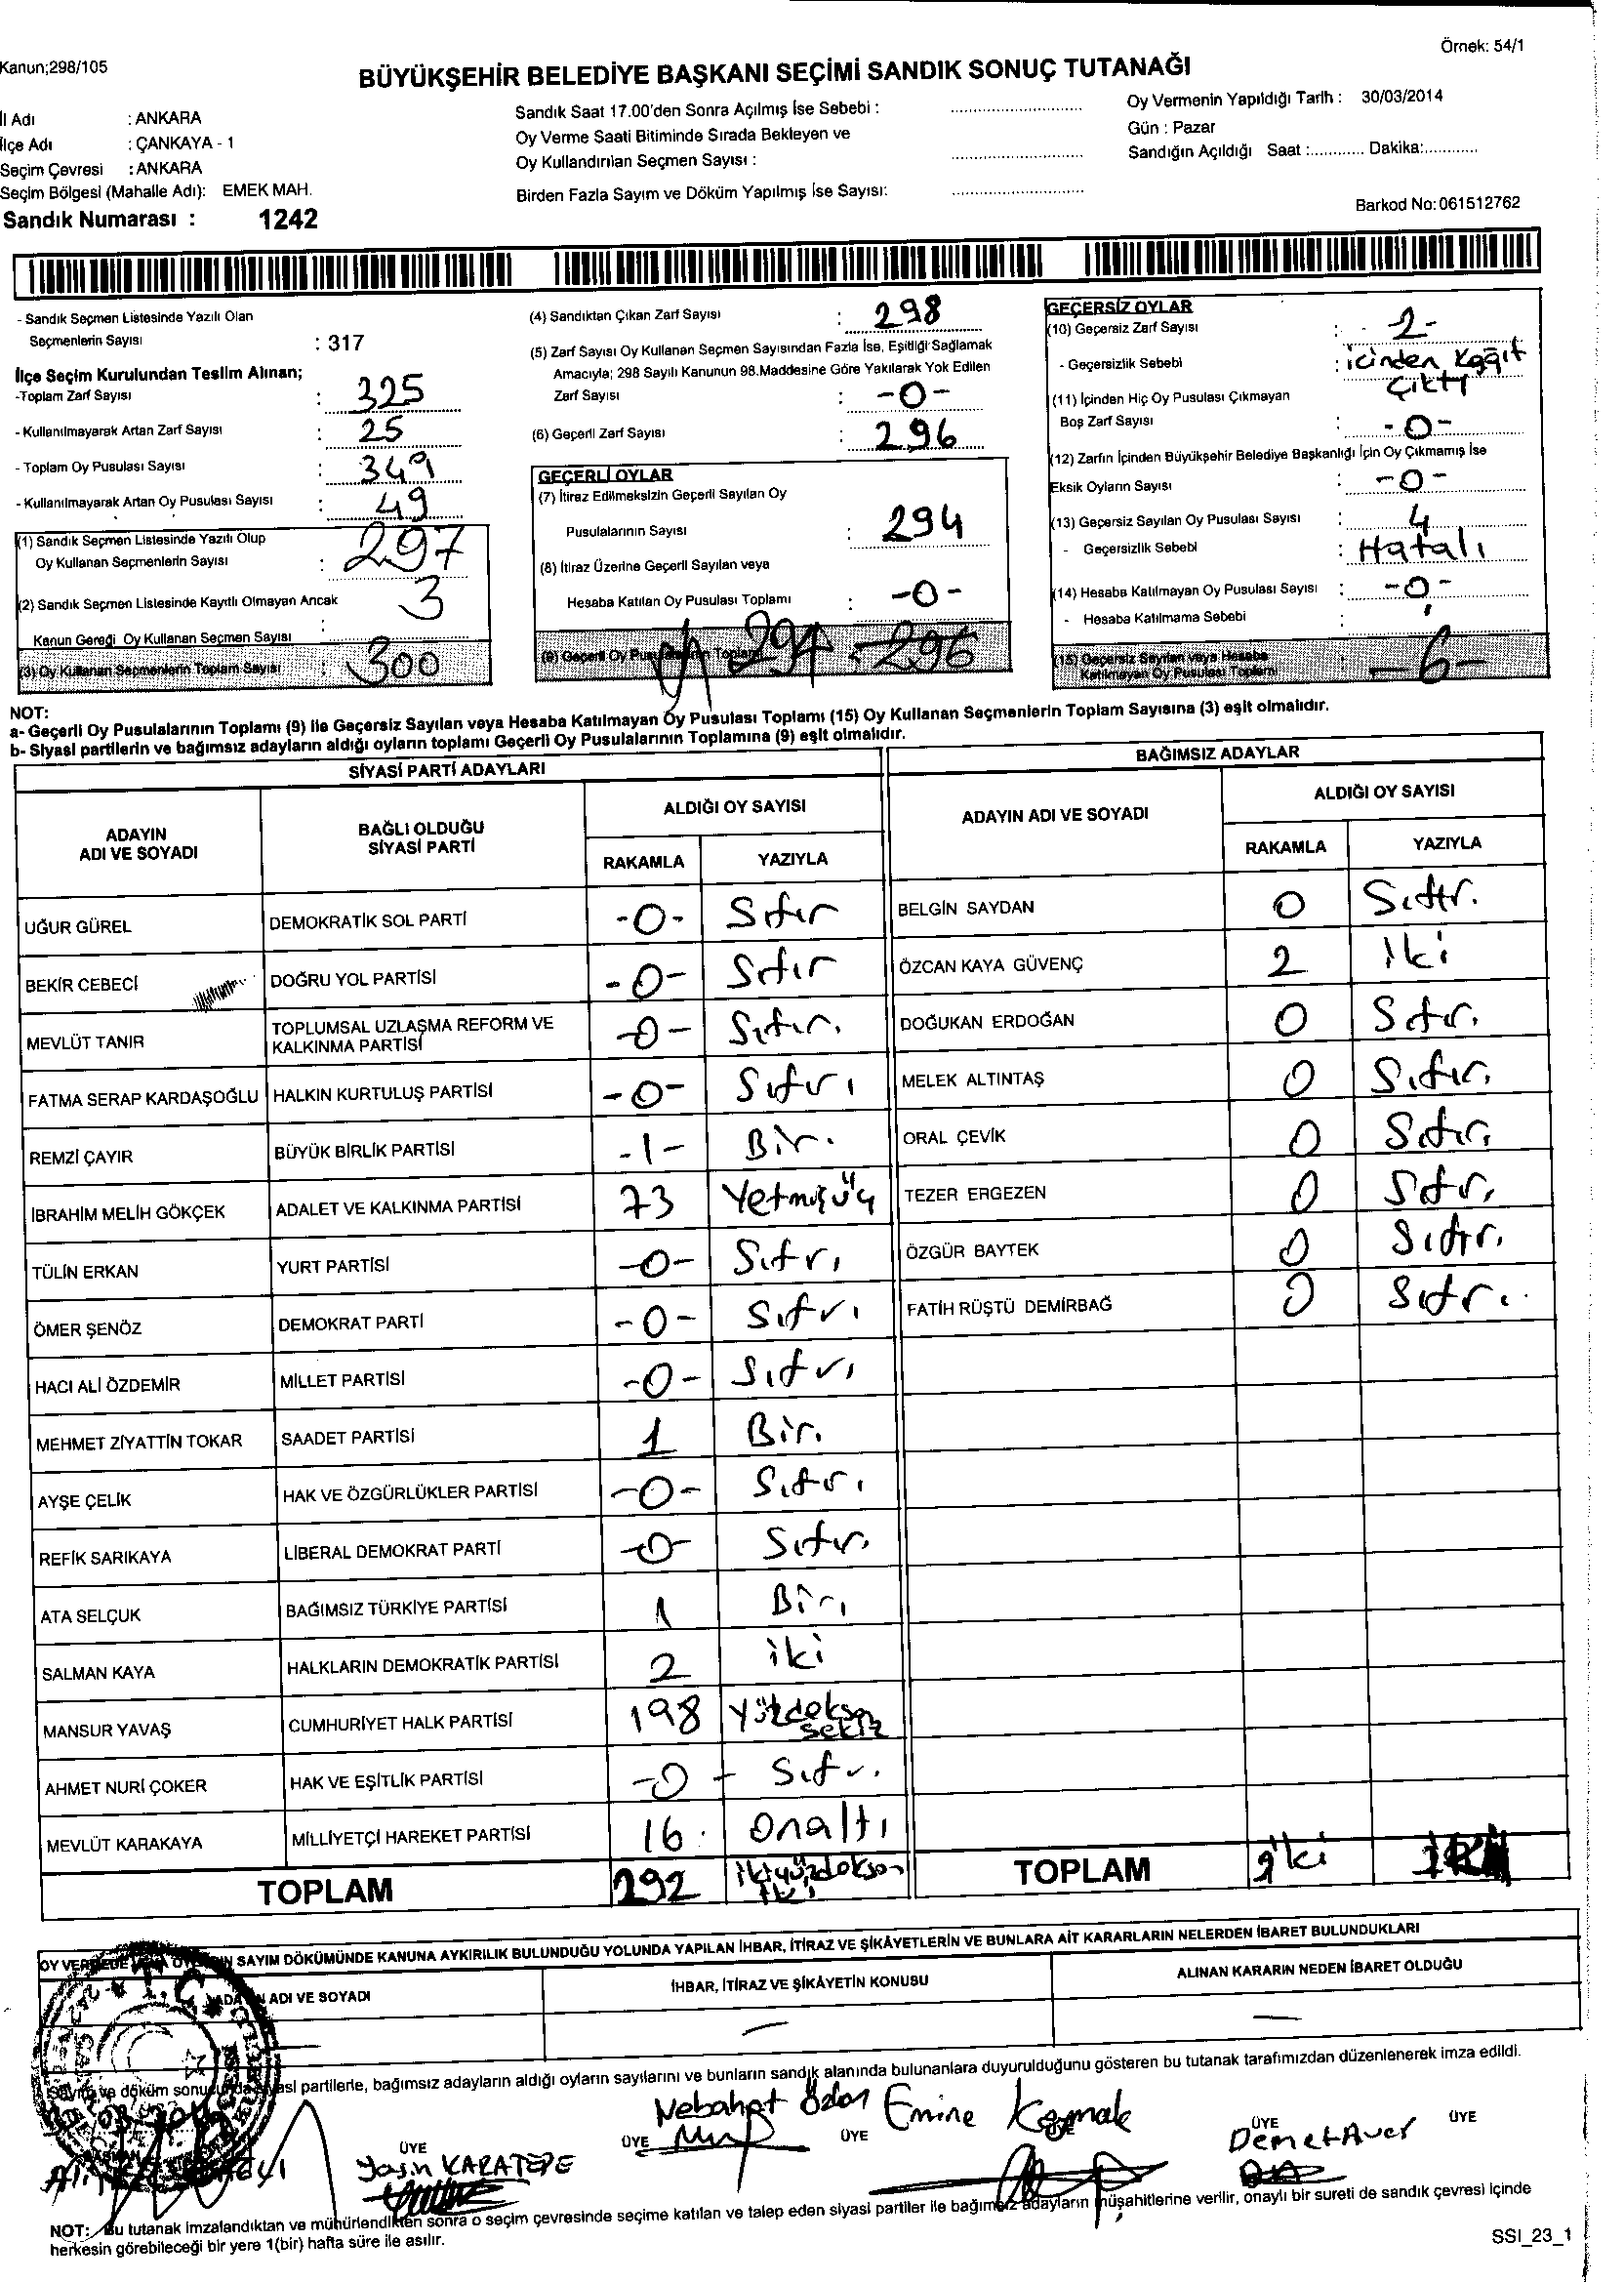 Örnek: 54/1
Kanun;298/105
BÜYÜKŞEHİR BELEDİYE BAŞKANI SEÇİMİ SANDIK SONUÇ TUTANAĞI
İl Adı : ANKARA
İlçe Adı : ÇANKAYA - 1
Seçim Çevresi : ANKARA
Seçim Bölgesi (Mahalle Adı): EMEK MAH.
Sandık Numarası : 1242
Sandık Saat 17.00'den Sonra Açılmış İse Sebebi :
Oy Verme Saati Bitiminde Sırada Bekleyen ve
Oy Kullandırılan Seçmen Sayısı :
Birden Fazla Sayım ve Döküm Yapılmış İse Sayısı:
Oy Vermenin Yapıldığı Tarih : 30/03/2014
Gün : Pazar
Sandığın Açıldığı Saat :............ Dakika:............
Barkod No: 061512762
- Sandık Seçmen Listesinde Yazılı Olan
Seçmenlerin Sayısı : 317
İlçe Seçim Kurulundan Teslim Alınan;
-Toplam Zarf Sayısı : 325
- Kullanılmayarak Artan Zarf Sayısı : 25
- Toplam Oy Pusulası Sayısı : 349
- Kullanılmayarak Artan Oy Pusulası Sayısı : 49
(1) Sandık Seçmen Listesinde Yazılı Olup
Oy Kullanan Seçmenlerin Sayısı : 297
(2) Sandık Seçmen Listesinde Kayıtlı Olmayan Ancak
Kanun Gereği Oy Kullanan Seçmen Sayısı : 3
(3) Oy Kullanan Seçmenlerin Toplam Sayısı : 300
(4) Sandıktan Çıkan Zarf Sayısı : 298
(5) Zarf Sayısı Oy Kullanan Seçmen Sayısından Fazla İse, Eşitliği Sağlamak
Amacıyla; 298 Sayılı Kanunun 98.Maddesine Göre Yakılarak Yok Edilen
Zarf Sayısı : -0-
(6) Geçerli Zarf Sayısı : 296
GEÇERLİ OYLAR
(7) İtiraz Edilmeksizin Geçerli Sayılan Oy
Pusulalarının Sayısı : 294
(8) İtiraz Üzerine Geçerli Sayılan veya
Hesaba Katılan Oy Pusulası Toplamı : -0-
(9) Geçerli Oy Pusulalarının Toplamı 294 - 296
GEÇERSİZ OYLAR
(10) Geçersiz Zarf Sayısı : - 2-
- Geçersizlik Sebebi : içinden Kağıt
Çıktı
(11) İçinden Hiç Oy Pusulası Çıkmayan
Boş Zarf Sayısı : -0-
(12) Zarfın İçinden Büyükşehir Belediye Başkanlığı İçin Oy Çıkmamış İse
Eksik Oyların Sayısı : -0-
(13) Geçersiz Sayılan Oy Pusulası Sayısı : 4
- Geçersizlik Sebebi : Hatalı
(14) Hesaba Katılmayan Oy Pusulası Sayısı : -0-
- Hesaba Katılmama Sebebi :
(15) Geçersiz Sayılan veya Hesaba
Katılmayan Oy Pusulası Toplamı : -6-
NOT:
a- Geçerli Oy Pusulalarının Toplamı (9) ile Geçersiz Sayılan veya Hesaba Katılmayan Oy Pusulası Toplamı (15) Oy Kullanan Seçmenlerin Toplam Sayısına (3) eşit olmalıdır.
b- Siyasi partilerin ve bağımsız adayların aldığı oyların toplamı Geçerli Oy Pusulalarının Toplamına (9) eşit olmalıdır.
SİYASİ PARTİ ADAYLARI
ADAYIN ADI VE SOYADI BAĞLI OLDUĞU SİYASİ PARTİ ALDIĞI OY SAYISI
RAKAMLA YAZIYLA
UĞUR GÜREL DEMOKRATİK SOL PARTİ -0- Sıfır
BEKİR CEBECİ DOĞRU YOL PARTİSİ -0- Sıfır
MEVLÜT TANIR TOPLUMSAL UZLAŞMA REFORM VE KALKINMA PARTİSİ -0- Sıfır.
FATMA SERAP KARDAŞOĞLU HALKIN KURTULUŞ PARTİSİ -0- Sıfır
REMZİ ÇAYIR BÜYÜK BİRLİK PARTİSİ -1- Bir.
İBRAHİM MELİH GÖKÇEK ADALET VE KALKINMA PARTİSİ 73 Yetmişüç
TÜLİN ERKAN YURT PARTİSİ -0- Sıfır
ÖMER ŞENÖZ DEMOKRAT PARTİ -0- Sıfır
HACI ALİ ÖZDEMİR MİLLET PARTİSİ -0- Sıfır
MEHMET ZİYATTİN TOKAR SAADET PARTİSİ 1 Bir.
AYŞE ÇELİK HAK VE ÖZGÜRLÜKLER PARTİSİ -0- Sıfır
REFİK SARIKAYA LİBERAL DEMOKRAT PARTİ -0- Sıfır
ATA SELÇUK BAĞIMSIZ TÜRKİYE PARTİSİ 1 Bir
SALMAN KAYA HALKLARIN DEMOKRATİK PARTİSİ 2 iki
MANSUR YAVAŞ CUMHURİYET HALK PARTİSİ 198 Yüzdoksan sekiz
AHMET NURİ ÇOKER HAK VE EŞİTLİK PARTİSİ -0- Sıfır.
MEVLÜT KARAKAYA MİLLİYETÇİ HAREKET PARTİSİ 16 onaltı
TOPLAM 292 ikiyüzdoksan iki
BAĞIMSIZ ADAYLAR
ADAYIN ADI VE SOYADI ALDIĞI OY SAYISI
RAKAMLA YAZIYLA
BELGİN SAYDAN 0 Sıfır.
ÖZCAN KAYA GÜVENÇ 2 iki
DOĞUKAN ERDOĞAN 0 Sıfır.
MELEK ALTINTAŞ 0 Sıfır.
ORAL ÇEVİK 0 Sıfır.
TEZER ERGEZEN 0 Sıfır.
ÖZGÜR BAYTEK 0 Sıfır.
FATİH RÜŞTÜ DEMİRBAĞ 0 Sıfır.
TOPLAM iki
SAYIM DÖKÜMÜNDE KANUNA AYKIRILIK BULUNDUĞU YOLUNDA YAPILAN İHBAR, İTİRAZ VE ŞİKÂYETLERİN VE BUNLARA AİT KARARLARIN NELERDEN İBARET BULUNDUKLARI
ADI VE SOYADI İHBAR, İTİRAZ VE ŞİKÂYETİN KONUSU ALINAN KARARIN NEDEN İBARET OLDUĞU
Sayım ve döküm sonucunda siyasi partilerle, bağımsız adayların aldığı oyların sayılarını ve bunların sandık alanında bulunanlara duyurulduğunu gösteren bu tutanak tarafımızdan düzenlenerek imza edildi.
Nebahat Özdan Emine Kaymak
ÜYE ÜYE ÜYE ÜYE ÜYE
Yasin KARATEPE Demet Avcı
NOT: Bu tutanak imzalandıktan ve mühürlendikten sonra o seçim çevresinde seçime katılan ve talep eden siyasi partiler ile bağımsız adayların müşahitlerine verilir, onaylı bir sureti de sandık çevresi içinde
herkesin görebileceği bir yere 1(bir) hafta süre ile asılır.
SSI_23_1